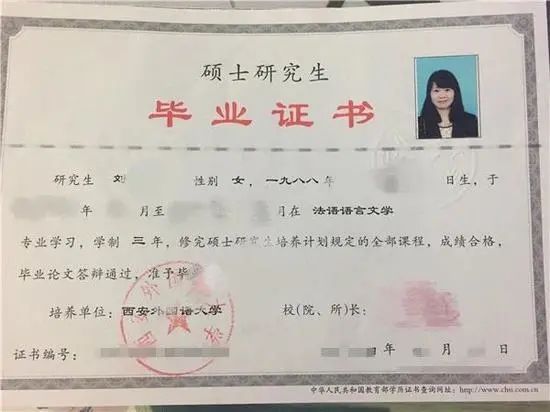 硕士研究生
毕业证书
研究生 刘 性别 女，一九八八年 日生，于
年 月至 月在 法语语言文学
专业学习，学制 三 年，修完硕士研究生培养计划规定的全部课程，成绩合格，
毕业论文答辩通过，准予毕
培养单位：西安外国语大学 校(院、所)长：
证书编号： 年 月 日
中华人民共和国教育部学历证书查询网址：http://www.chsi.com.cn